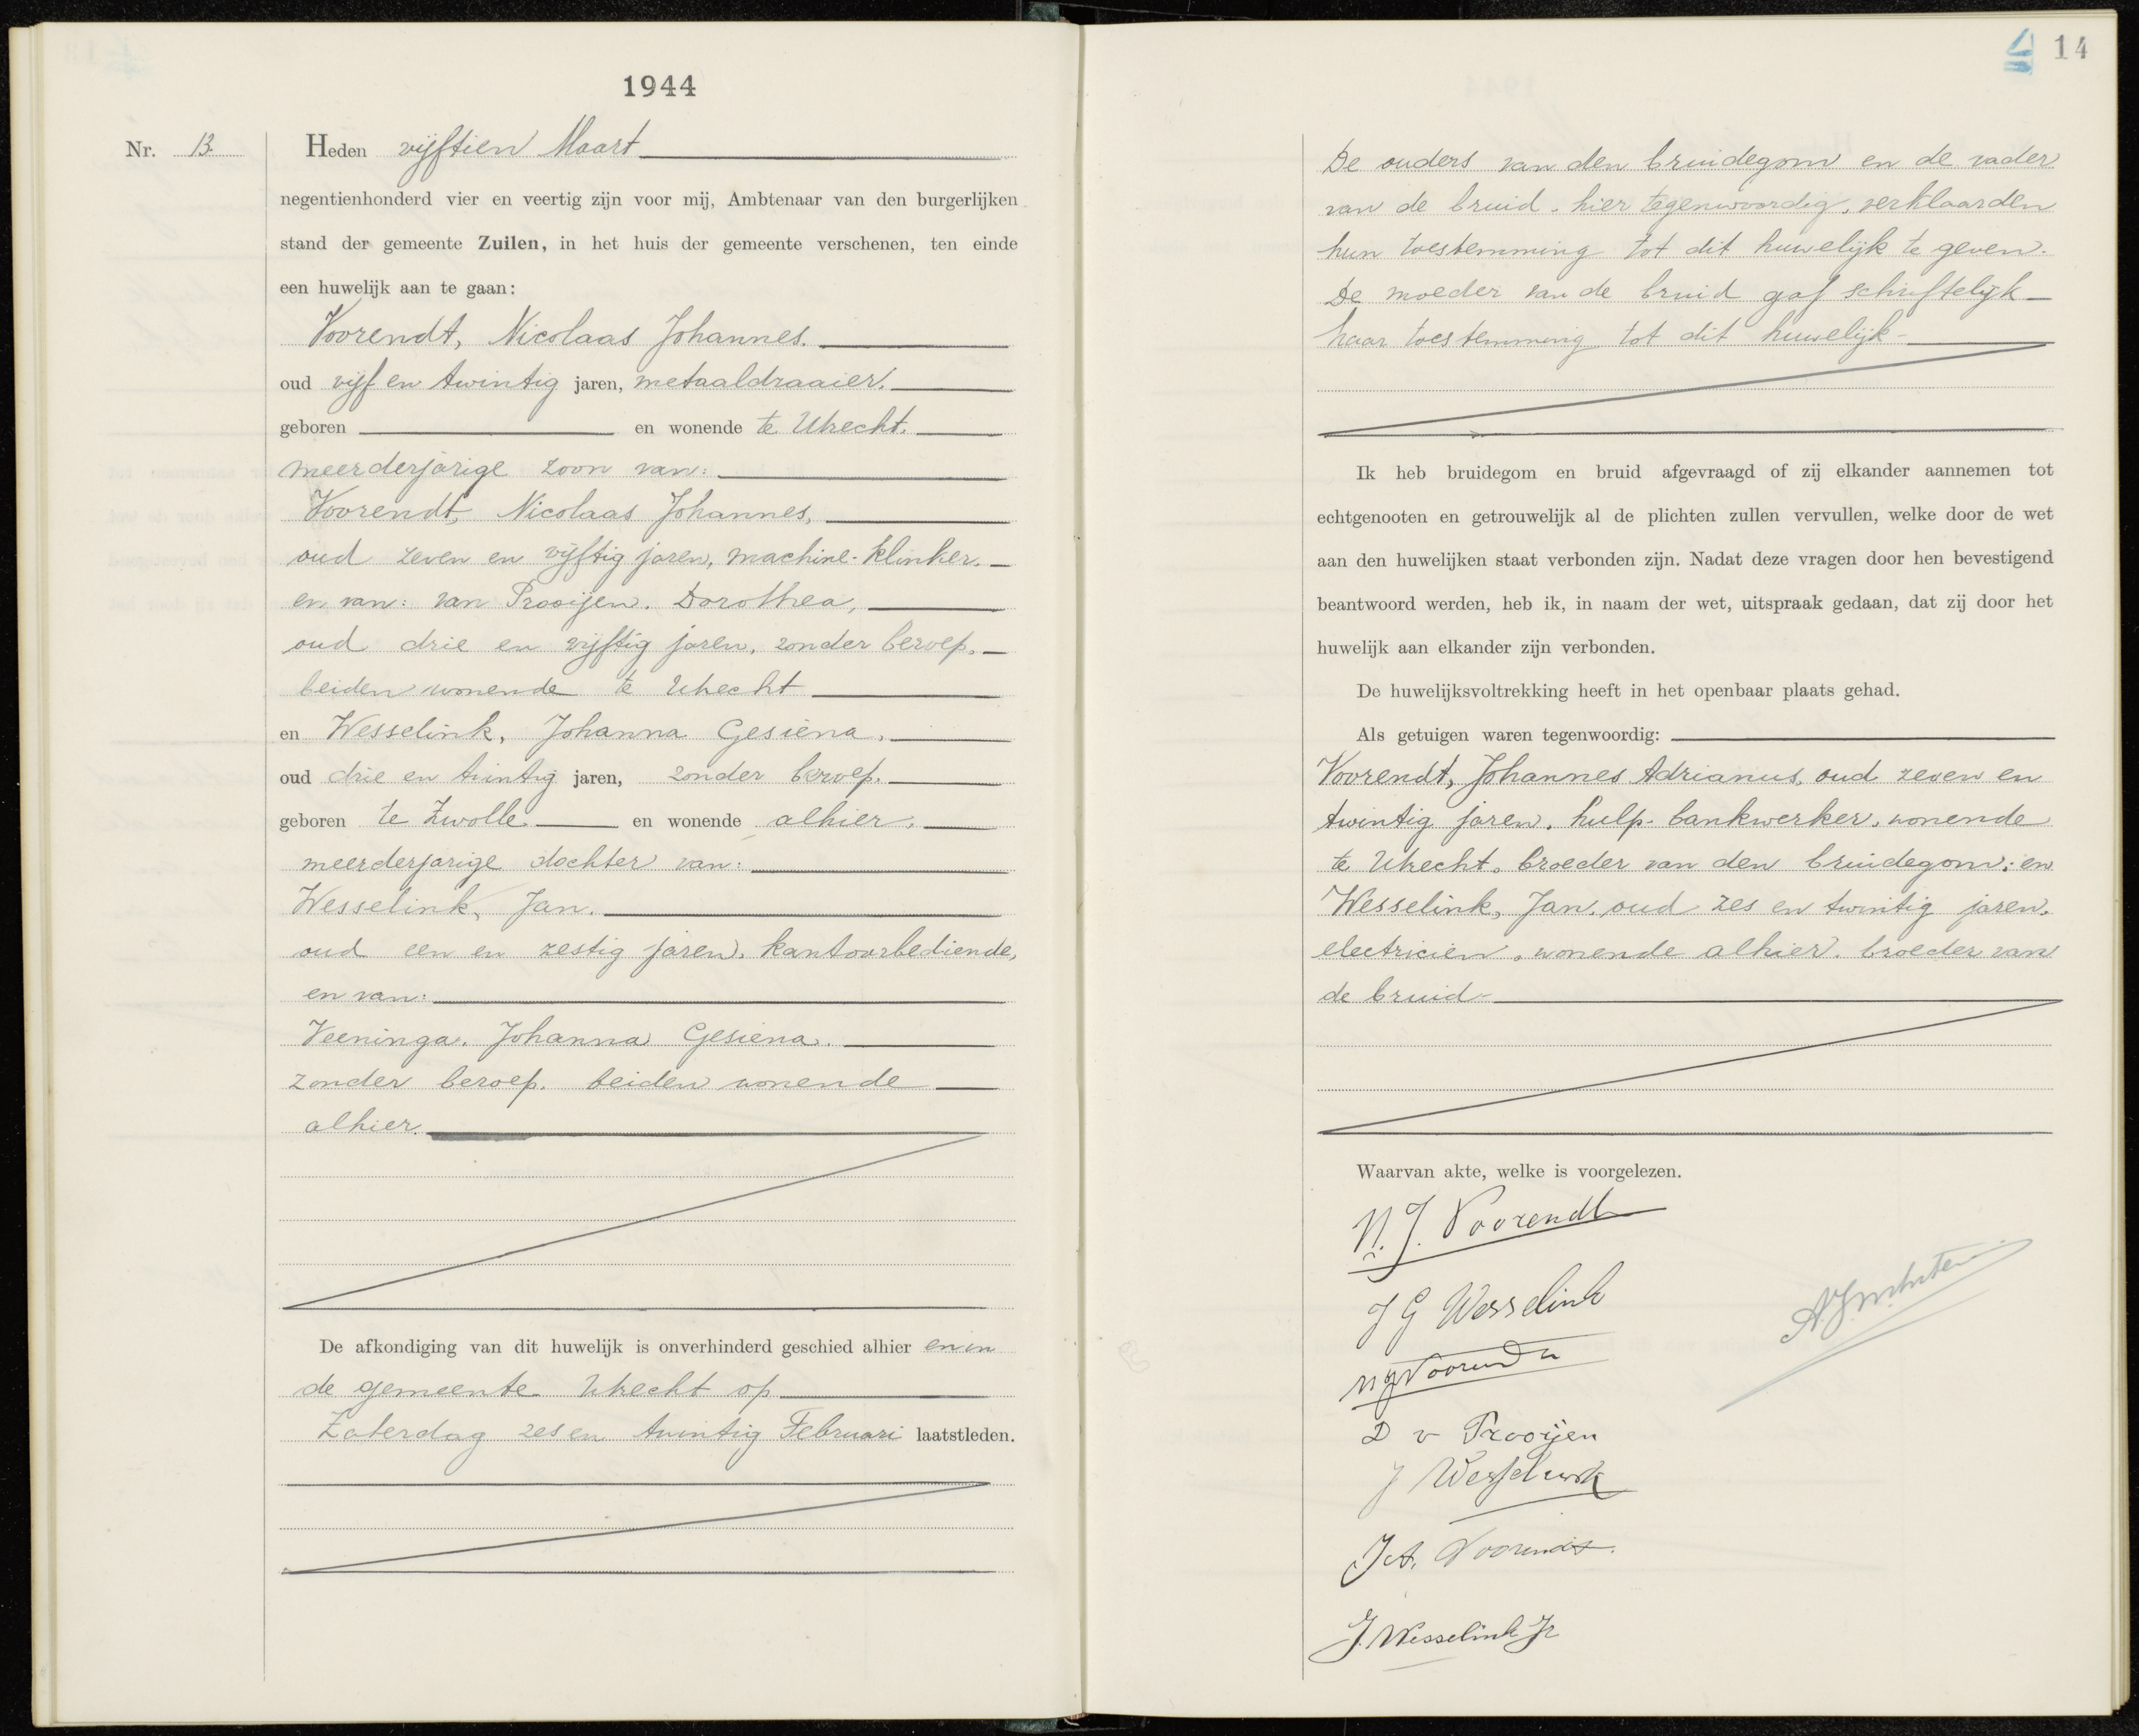 1944
Nr. 13.
Heden vijftien Maart
negentienhonderd vier en veertig zijn voor mij, Ambtenaar van den burgerlijken
stand der gemeente Zuilen, in het huis der gemeente verschenen, ten einde
een huwelijk aan te gaan:
Voorendt, Nicolaas Johannes.
oud vijf en twintig jaren, metaaldraaier.
geboren en wonende te Utrecht.
meerderjarige zoon van:
Voorendt, Nicolaas Johannes,
oud zeven en vijftig jaren, machine-klinker.
en van: van Prooijen. Dorothea,
oud drie en vijftig jaren, zonder beroep.
beiden wonende te Utrecht
en Wesselink, Johanna Gesiena,
oud drie en twintig jaren, zonder beroep.
geboren te Zwolle en wonende alhier,
meerderjarige dochter van:
Wesselink, Jan.
oud een en zestig jaren, kantoorbediende,
en van:
Veeninga. Johanna Gesiena.
zonder beroep. beiden wonende
alhier.
De afkondiging van dit huwelijk is onverhinderd geschied alhier en in
de gemeente Utrecht op
Zaterdag zes en twintig Februari laatstleden.
4 14
De ouders van den bruidegom en de vader
van de bruid, hier tegenwoordig, verklaarden
hun toestemming tot dit huwelijk te geven.
De moeder van de bruid gaf schriftelijk
haar toestemming tot dit huwelijk
Ik heb bruidegom en bruid afgevraagd of zij elkander aannemen tot
echtgenooten en getrouwelijk al de plichten zullen vervullen, welke door de wet
aan den huwelijken staat verbonden zijn. Nadat deze vragen door hen bevestigend
beantwoord werden, heb ik, in naam der wet, uitspraak gedaan, dat zij door het
huwelijk aan elkander zijn verbonden.
De huwelijksvoltrekking heeft in het openbaar plaats gehad.
Als getuigen waren tegenwoordig:
Voorendt, Johannes Adrianus, oud zeven en
twintig jaren, hulp-bankwerker, wonende
te Utrecht, broeder van den bruidegom; en
Wesselink, Jan, oud zes en twintig jaren.
electricien, wonende alhier. broeder van
de bruid
Waarvan akte, welke is voorgelezen.
N. J. Voorendt
J G Wesselink
N J Voorendt
D v Prooijen
J Wesselink
J. A. Voorendt.
J. Wesselink Jr